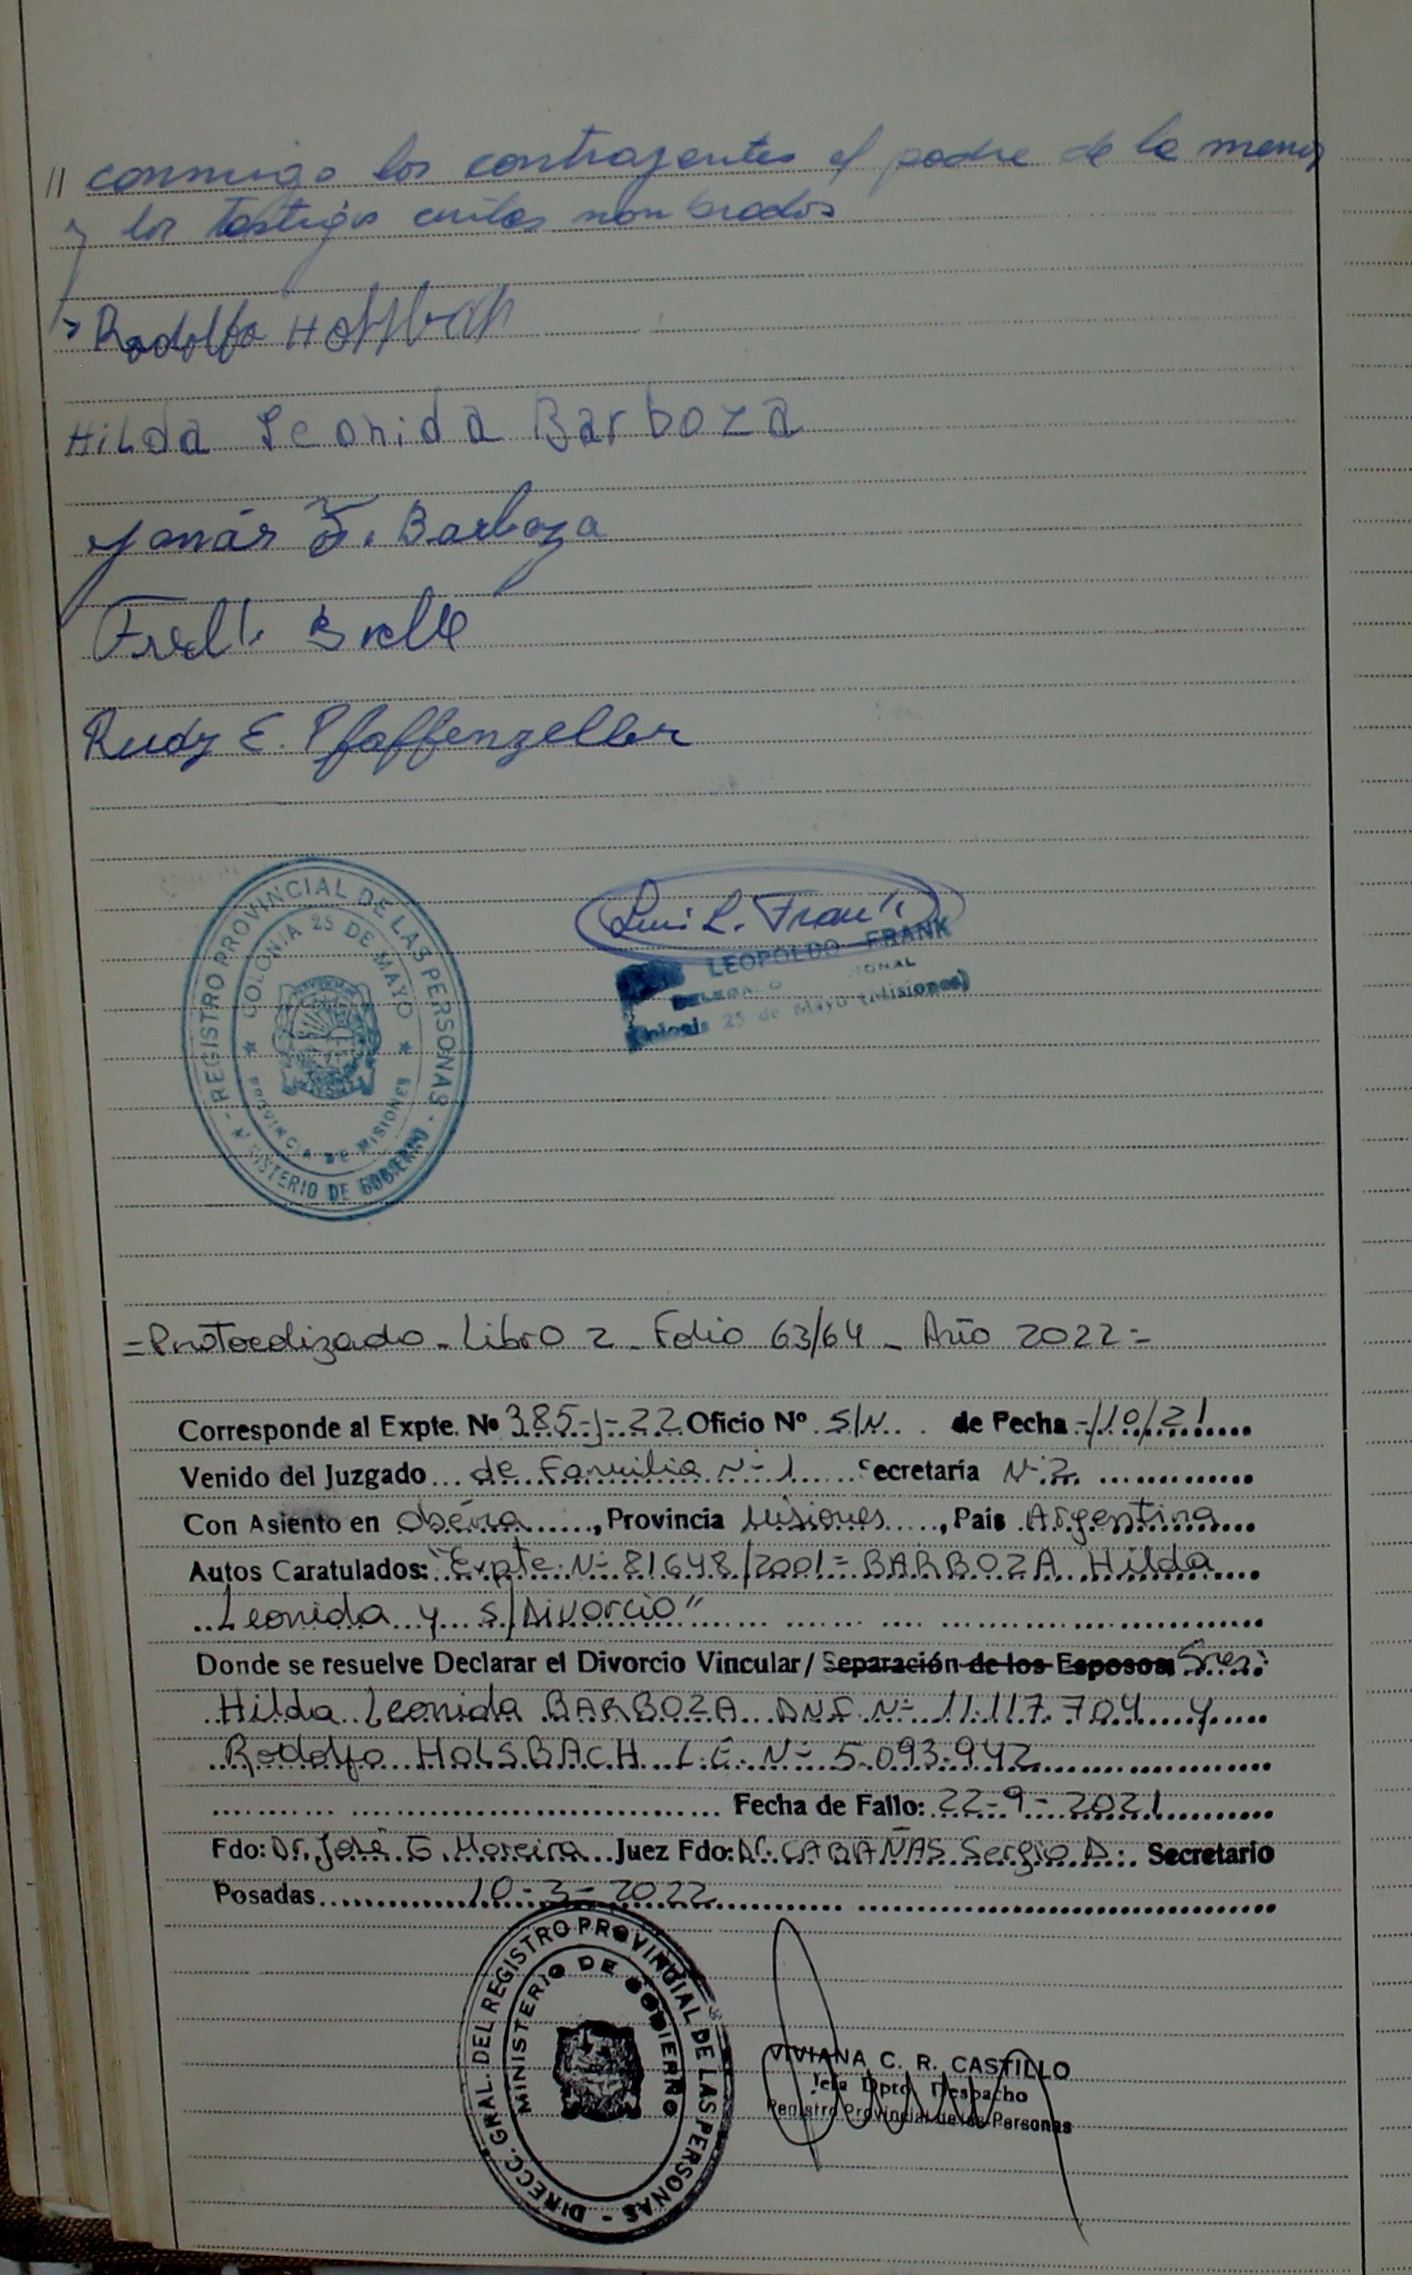 // conmigo los contrayentes el padre de la menor
y los testigos arriba nombrados
Rodolfo Holsbach
Hilda Leonida Barboza
F. Barboza
Rudy E. Pfaffenzeller
REGISTRO PROVINCIAL DE LAS PERSONAS
COLONIA 25 DE MAYO
PROVINCIA DE MISIONES
MINISTERIO DE GOBIERNO
Luis L. Frank
LEOPOLDO FRANK
Colonia 25 de Mayo (Misiones)
=Protocolizado - Libro 2 - Folio 63/64 - Año 2022=
Corresponde al Expte. Nº 385-J-22 Oficio Nº S/N. de Fecha -/10/21
Venido del Juzgado de Familia Nº 1 Secretaría Nº 2
Con Asiento en Oberá, Provincia Misiones, Pais Argentina
Autos Caratulados: "Expte. Nº 81648/2001= BARBOZA Hilda
Leonida y s/Divorcio"
Donde se resuelve Declarar el Divorcio Vincular/ Separación de los Esposos Sres:
Hilda Leonida BARBOZA DNI. Nº 11.117.704 y
Rodolfo HOLSBACH L.E. Nº 5.093.942
Fecha de Fallo: 22-9-2021
Fdo: Dr. José G. Moreira Juez Fdo: Dr. CABAÑAS Sergio D. Secretario
Posadas 10-3-2022
DIRECC. GRAL. DEL REGISTRO PROVINCIAL DE LAS PERSONAS
MINISTERIO DE GOBIERNO
VIVIANA C. R. CASTILLO
Jefa Dpto Despacho
Registro Provincial de las Personas